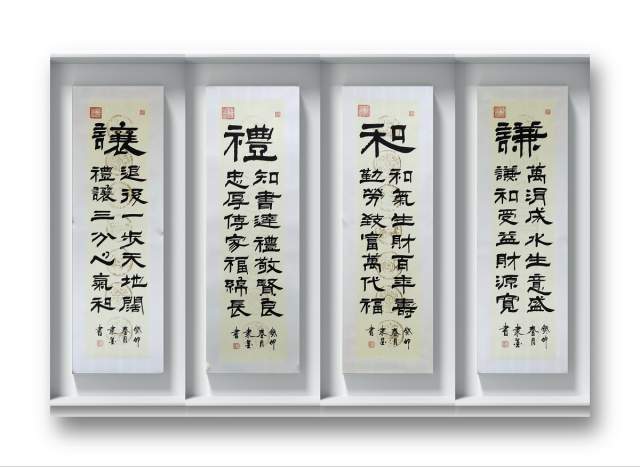 謙
萬涓成水生意盛
謙和受益財源寬
癸卯
春月
書
和
和氣生財百年壽
勤勞致富萬代福
癸卯
春月
書
禮
知書達禮敬賢良
忠厚傳家福綿長
癸卯
春月
書
讓
退後一步天地闊
禮讓三分心氣和
癸卯
春月
書